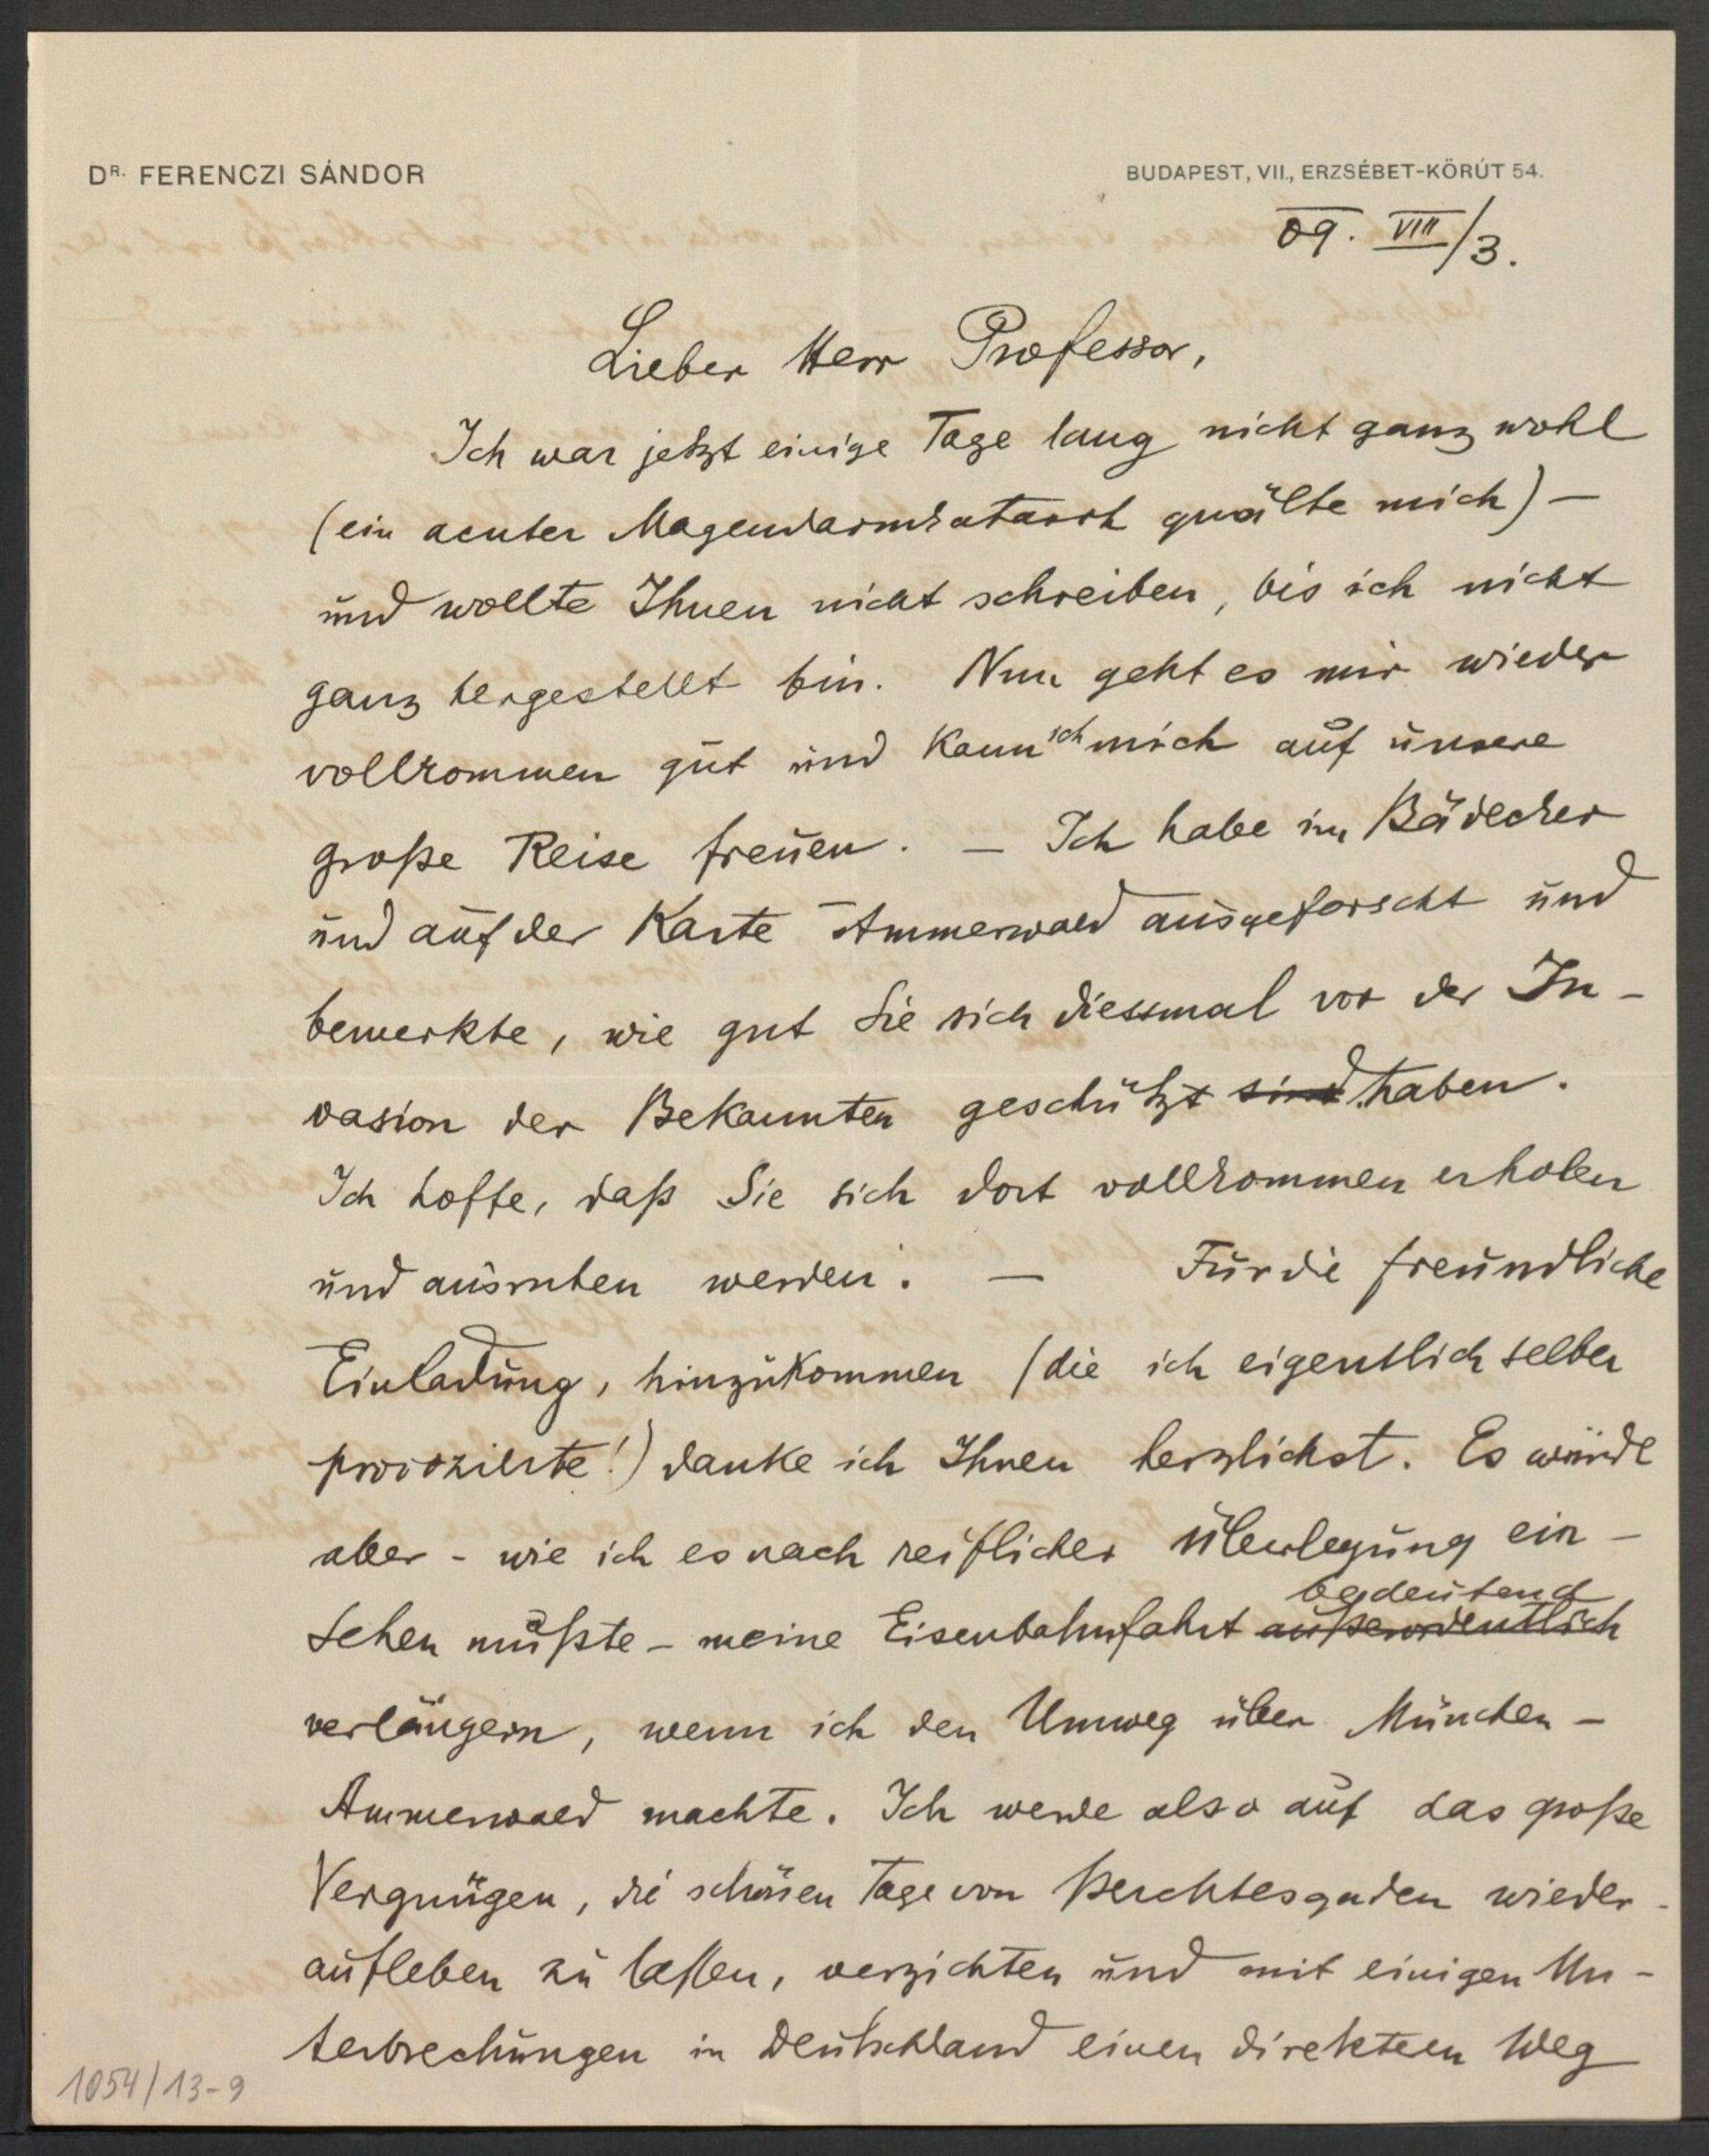 DR. FERENCZI SÁNDOR
BUDAPEST, VII., ERZSÉBET-KÖRÚT 54.
09. VIII/3.
Lieber Herr Professor,
Ich war jetzt einige Tage lang nicht ganz wohl
(ein acuter Magendarmkatarrh quälte mich) –
und wollte Ihnen nicht schreiben, bis ich nicht
ganz hergestellt bin. Nun geht es mir wieder
vollkommen gut und kann ich mich auf unsere
große Reise freuen. – Ich habe im Bädecker
und auf der Karte Ammerwald ausgeforscht und
bemerkte, wie gut Sie sich diessmal vor der In-
vasion der Bekannten geschützt sind haben.
Ich hoffe, daß Sie sich dort vollkommen erholen
und ausruhen werden. – Für die freundliche
Einladung, hinzukommen (die ich eigentlich selber
provozierte!) danke ich Ihnen herzlichst. Es würde
aber - wie ich es nach reiflicher Überlegung ein-
bedeutend
sehen mußte - meine Eisenbahnfahrt außerordentlich
verlängern, wenn ich den Umweg über München -
Ammerwald machte. Ich werde also auf das große
Vergnügen, die schönen Tage von Berchtesgaden wieder-
aufleben zu lassen, verzichten und mit einigen Un-
terbrechungen in Deutschland einen direkteren Weg
1054/13-9